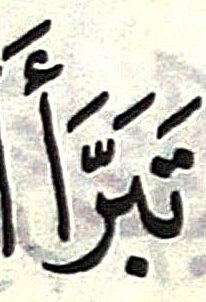 تَبَرَّأَ